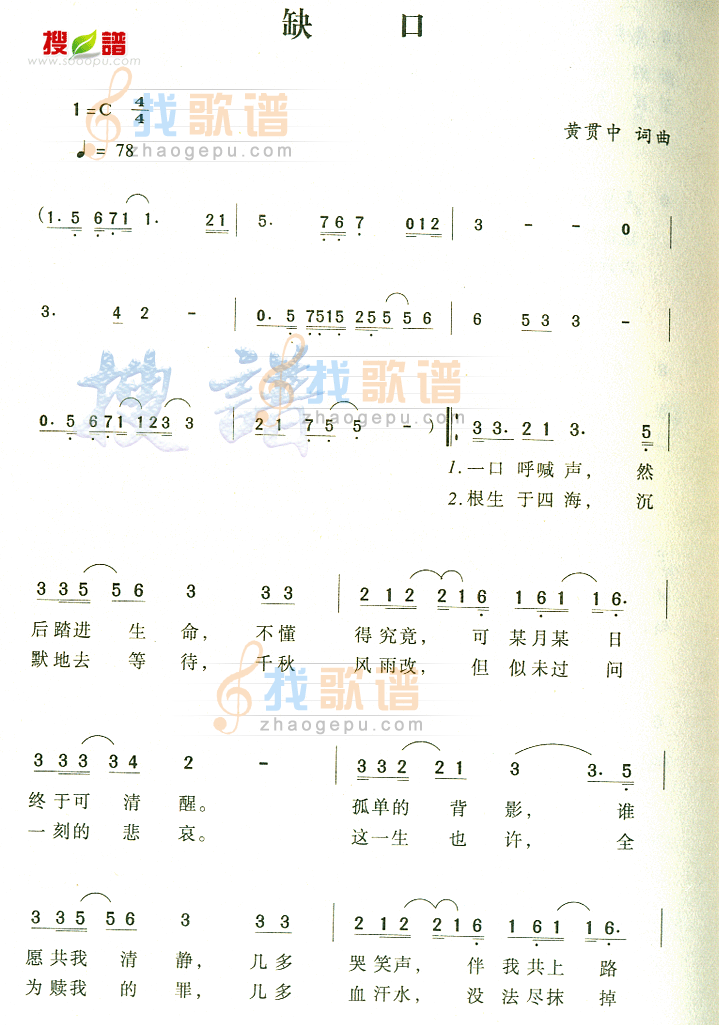 缺 口
搜谱
www.sooopu.com
1=C 4/4
找歌谱
zhaogepu.com
♩= 78
黄贯中 词曲
(1. 5 6 7 1 1. 2 1 | 5. 7 6 7 0 1 2 | 3 - - 0 |
3. 4 2 - | 0. 5 7 5 1 5 2 5 5 5 6 | 6 5 3 3 - |
搜谱
找歌谱
zhaogepu.com
0. 5 6 7 1 1 2 3 3 | 2 1 7 5 5 - ) ‖: 3 3. 2 1 3. 5
1.一口 呼喊 声, 然
2.根生 于四 海, 沉
3 3 5 5 6 3 3 3 | 2 1 2 2 1 6 1 6 1 1 6.
后踏进 生 命, 不懂 得究竟, 可 某月某 日
默地去 等 待, 千秋 风雨改, 但 似未过 问
找歌谱
zhaogepu.com
3 3 3 3 4 2 - | 3 3 2 2 1 3 3. 5
终于可 清 醒。 孤单的 背 影, 谁
一刻的 悲 哀。 这一生 也 许, 全
3 3 5 5 6 3 3 3 | 2 1 2 2 1 6 1 6 1 1 6.
愿共我 清 静, 几多 哭笑声, 伴 我共上 路
为赎我 的 罪, 几多 血汗水, 没 法尽抹 掉